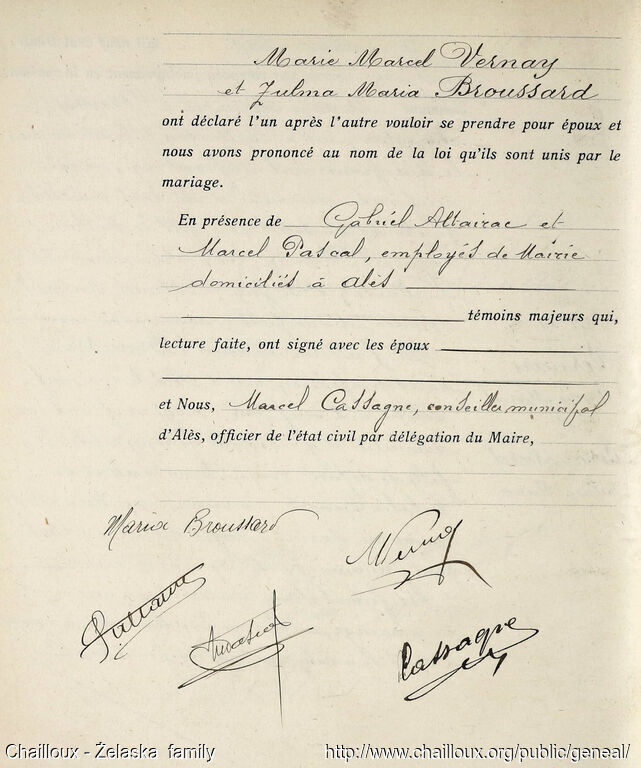 Marie Marcel Vernay
et Zulma Maria Broussard
ont déclaré l'un après l'autre vouloir se prendre pour époux et
nous avons prononcé au nom de la loi qu'ils sont unis par le
mariage.
En présence de Gabriel Altairac et
Marcel Pascal, employés de Mairie
domiciliés à Alès
témoins majeurs qui,
lecture faite, ont signé avec les époux
et Nous, Marcel Cassagne, conseiller municipal
d'Alès, officier de l'état civil par délégation du Maire,
Maria Broussard
Cassagne
Chailloux - Żelaska family
http://www.chailloux.org/public/geneal/